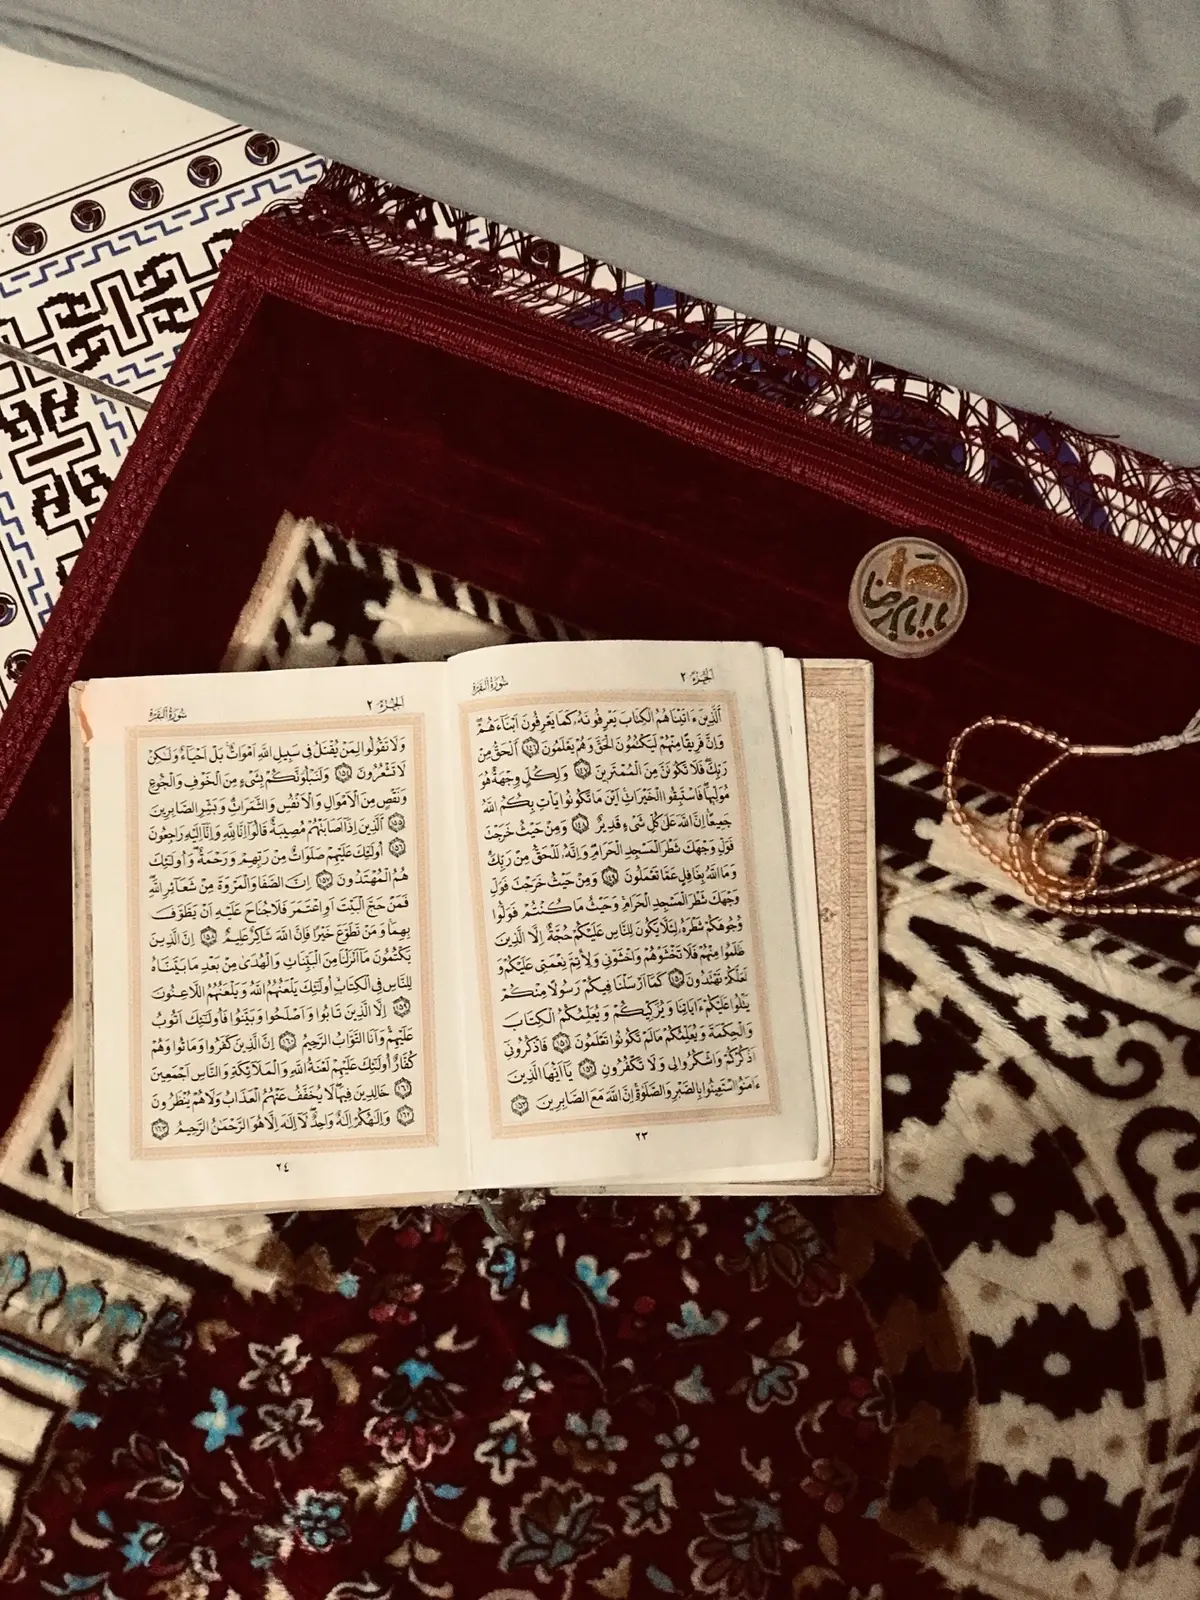 اَلْجُزْءُ ٢ سُورَةُ الْبَقَرَةِ
اَلَّذِينَ ءَاتَيْنَاهُمُ الْكِتَابَ يَعْرِفُونَهُ كَمَا يَعْرِفُونَ اَبْنَاءَهُمْ
وَاِنَّ فَرِيقًا مِنْهُمْ لَيَكْتُمُونَ الْحَقَّ وَهُمْ يَعْلَمُونَ ١٤٦ اَلْحَقُّ مِنْ
رَبِّكَ فَلَا تَكُونَنَّ مِنَ الْمُمْتَرِينَ ١٤٧ وَلِكُلٍّ وِجْهَةٌ هُوَ
مُوَلِّيهَا فَاسْتَبِقُوا الْخَيْرَاتِ اَيْنَ مَا تَكُونُوا يَأْتِ بِكُمُ اللّٰهُ
جَمِيعًا اِنَّ اللّٰهَ عَلَى كُلِّ شَىْءٍ قَدِيرٌ ١٤٨ وَمِنْ حَيْثُ خَرَجْتَ
فَوَلِّ وَجْهَكَ شَطْرَ الْمَسْجِدِ الْحَرَامِ وَاِنَّهُ لَلْحَقُّ مِنْ رَبِّكَ
وَمَا اللّٰهُ بِغَافِلٍ عَمَّا تَعْمَلُونَ ١٤٩ وَمِنْ حَيْثُ خَرَجْتَ فَوَلِّ
وَجْهَكَ شَطْرَ الْمَسْجِدِ الْحَرَامِ وَحَيْثُ مَا كُنْتُمْ فَوَلُّوا
وُجُوهَكُمْ شَطْرَهُ لِئَلَّا يَكُونَ لِلنَّاسِ عَلَيْكُمْ حُجَّةٌ اِلَّا الَّذِينَ
ظَلَمُوا مِنْهُمْ فَلَا تَخْشَوْهُمْ وَاخْشَوْنِى وَلِاُتِمَّ نِعْمَتِى عَلَيْكُمْ وَ
لَعَلَّكُمْ تَهْتَدُونَ ١٥٠ كَمَا اَرْسَلْنَا فِيكُمْ رَسُولًا مِنْكُمْ
يَتْلُوا عَلَيْكُمْ ءَايَاتِنَا وَيُزَكِّيكُمْ وَيُعَلِّمُكُمُ الْكِتَابَ
وَالْحِكْمَةَ وَيُعَلِّمُكُمْ مَالَمْ تَكُونُوا تَعْلَمُونَ ١٥١ فَاذْكُرُونِى
اَذْكُرْكُمْ وَاشْكُرُوا لِى وَلَا تَكْفُرُونِ ١٥٢ يَا اَيُّهَا الَّذِينَ
ءَامَنُوا اسْتَعِينُوا بِالصَّبْرِ وَالصَّلٰوةِ اِنَّ اللّٰهَ مَعَ الصَّابِرِينَ ١٥٣
٢٣
اَلْجُزْءُ ٢ سُورَةُ الْبَقَرَةِ
وَلَا تَقُولُوا لِمَنْ يُقْتَلُ فِى سَبِيلِ اللّٰهِ اَمْوَاتٌ بَلْ اَحْيَاءٌ وَلٰكِنْ
لَا تَشْعُرُونَ ١٥٤ وَلَنَبْلُوَنَّكُمْ بِشَىْءٍ مِنَ الْخَوْفِ وَالْجُوعِ
وَنَقْصٍ مِنَ الْاَمْوَالِ وَالْاَنْفُسِ وَالثَّمَرَاتِ وَبَشِّرِ الصَّابِرِينَ
١٥٥ اَلَّذِينَ اِذَا اَصَابَتْهُمْ مُصِيبَةٌ قَالُوا اِنَّا لِلّٰهِ وَاِنَّا اِلَيْهِ رَاجِعُونَ
١٥٦ اُولٰئِكَ عَلَيْهِمْ صَلَوَاتٌ مِنْ رَبِّهِمْ وَرَحْمَةٌ وَاُولٰئِكَ
هُمُ الْمُهْتَدُونَ ١٥٧ اِنَّ الصَّفَا وَالْمَرْوَةَ مِنْ شَعَائِرِ اللّٰهِ
فَمَنْ حَجَّ الْبَيْتَ اَوِ اعْتَمَرَ فَلَا جُنَاحَ عَلَيْهِ اَنْ يَطَّوَّفَ
بِهِمَا وَمَنْ تَطَوَّعَ خَيْرًا فَاِنَّ اللّٰهَ شَاكِرٌ عَلِيمٌ ١٥٨ اِنَّ الَّذِينَ
يَكْتُمُونَ مَا اَنْزَلْنَا مِنَ الْبَيِّنَاتِ وَالْهُدَى مِنْ بَعْدِ مَا بَيَّنَّاهُ
لِلنَّاسِ فِى الْكِتَابِ اُولٰئِكَ يَلْعَنُهُمُ اللّٰهُ وَيَلْعَنُهُمُ اللَّاعِنُونَ
١٥٩ اِلَّا الَّذِينَ تَابُوا وَاَصْلَحُوا وَبَيَّنُوا فَاُولٰئِكَ اَتُوبُ
عَلَيْهِمْ وَاَنَا التَّوَّابُ الرَّحِيمُ ١٦٠ اِنَّ الَّذِينَ كَفَرُوا وَمَاتُوا وَهُمْ
كُفَّارٌ اُولٰئِكَ عَلَيْهِمْ لَعْنَةُ اللّٰهِ وَالْمَلَائِكَةِ وَالنَّاسِ اَجْمَعِينَ
١٦١ خَالِدِينَ فِيهَا لَا يُخَفَّفُ عَنْهُمُ الْعَذَابُ وَلَا هُمْ يُنْظَرُونَ
١٦٢ وَاِلٰهُكُمْ اِلٰهٌ وَاحِدٌ لَا اِلٰهَ اِلَّا هُوَ الرَّحْمٰنُ الرَّحِيمُ ١٦٣
٢٤
یا امام رضا